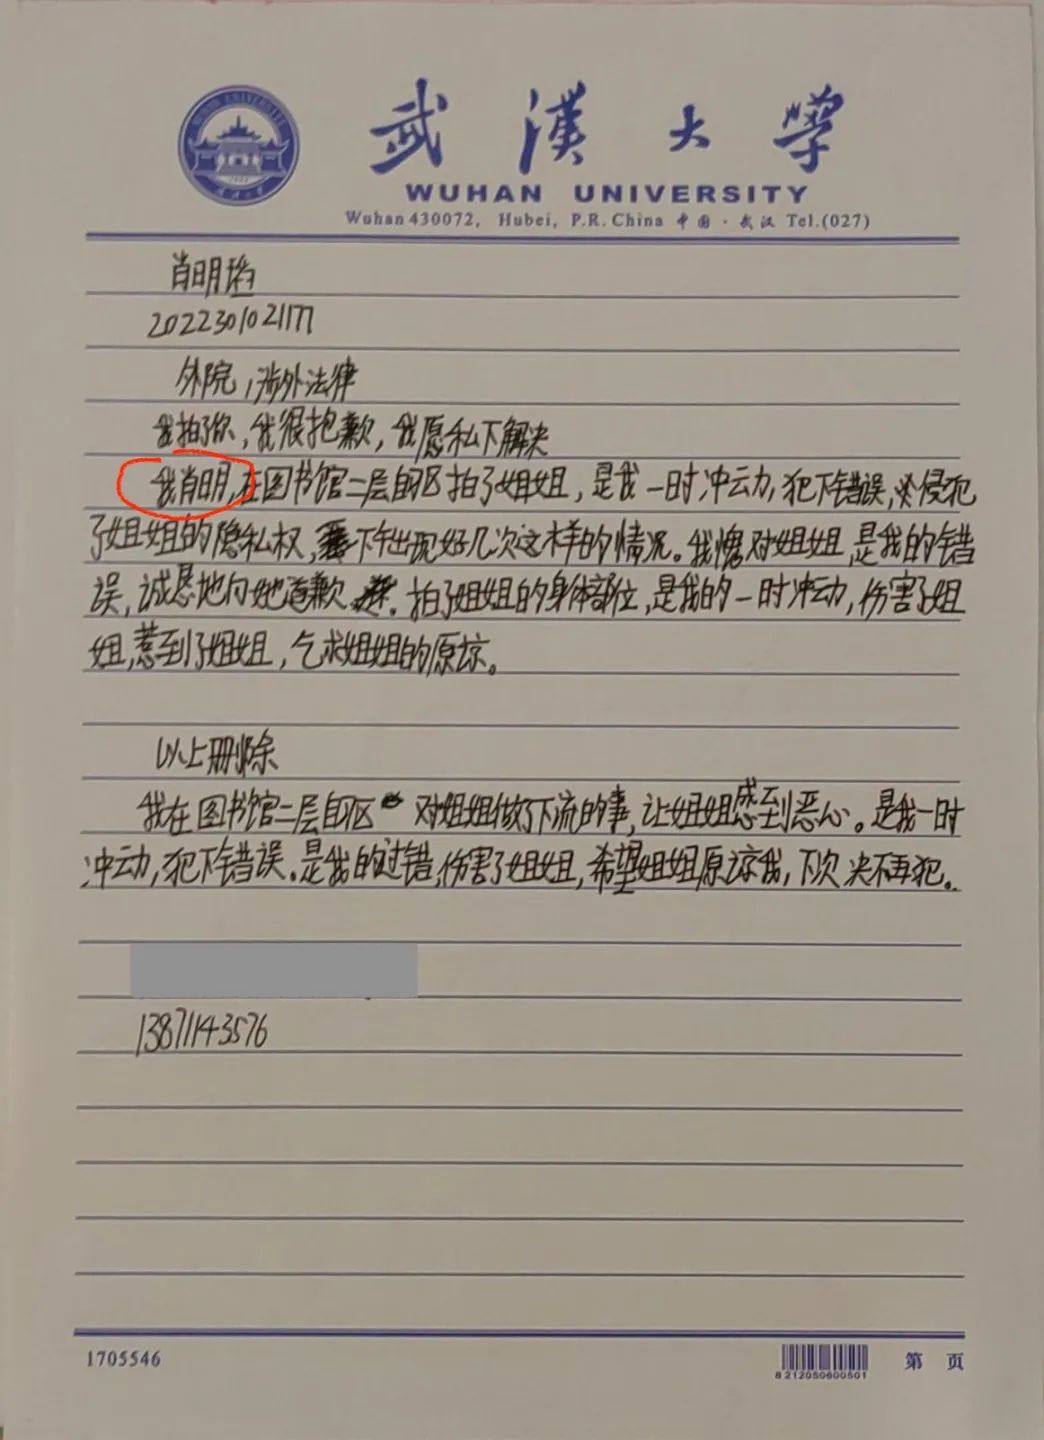 武漢大學
WUHAN UNIVERSITY
Wuhan 430072, Hubei, P.R. China 中国·武汉 Tel.(027)
肖明瑫
202230102177
外院,涉外法律
我拍了你,我很抱歉,我愿私下解决
我肖明,在图书馆二层自区拍了姐姐,是我一时冲动,犯下错误,侵犯
了姐姐的隐私权,下午出现好几次这样的情况。我愧对姐姐,是我的错
误,诚恳地向她道歉.拍了姐姐的身体部位,是我的一时冲动,伤害了姐
姐,惹到了姐姐,乞求姐姐的原谅。
以上删除
我在图书馆二层自区对姐姐做了下流的事,让姐姐感到恶心。是我一时
冲动,犯下错误.是我的过错,伤害了姐姐,希望姐姐原谅我,下次决不再犯。
13871143576
1705546
8 212050600501
第 页